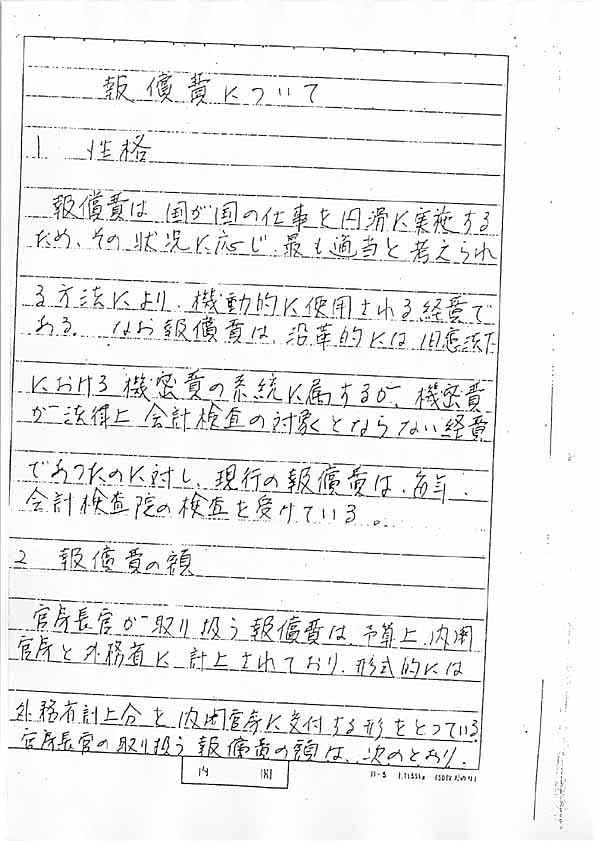 報償費について
1 性格
報償費は、国が国の仕事を円滑に実施する
ため、その状況に応じ、最も適当と考えられ
る方法により、機動的に使用される経費で
ある。なお報償費は、沿革的には旧憲法下
における機密費の系統に属するが、機密費
が法律上会計検査の対象とならない経費
であつたのに対し、現行の報償費は、毎年、
会計検査院の検査を受けている。
2 報償費の額
官房長官が取り扱う報償費は、予算上、内閣
官房と外務省に計上されており、形式的には
外務省計上分を内閣官房に交付する形をとつている。
官房長官の取り扱う報償費の額は、次のとおり。
内 閣